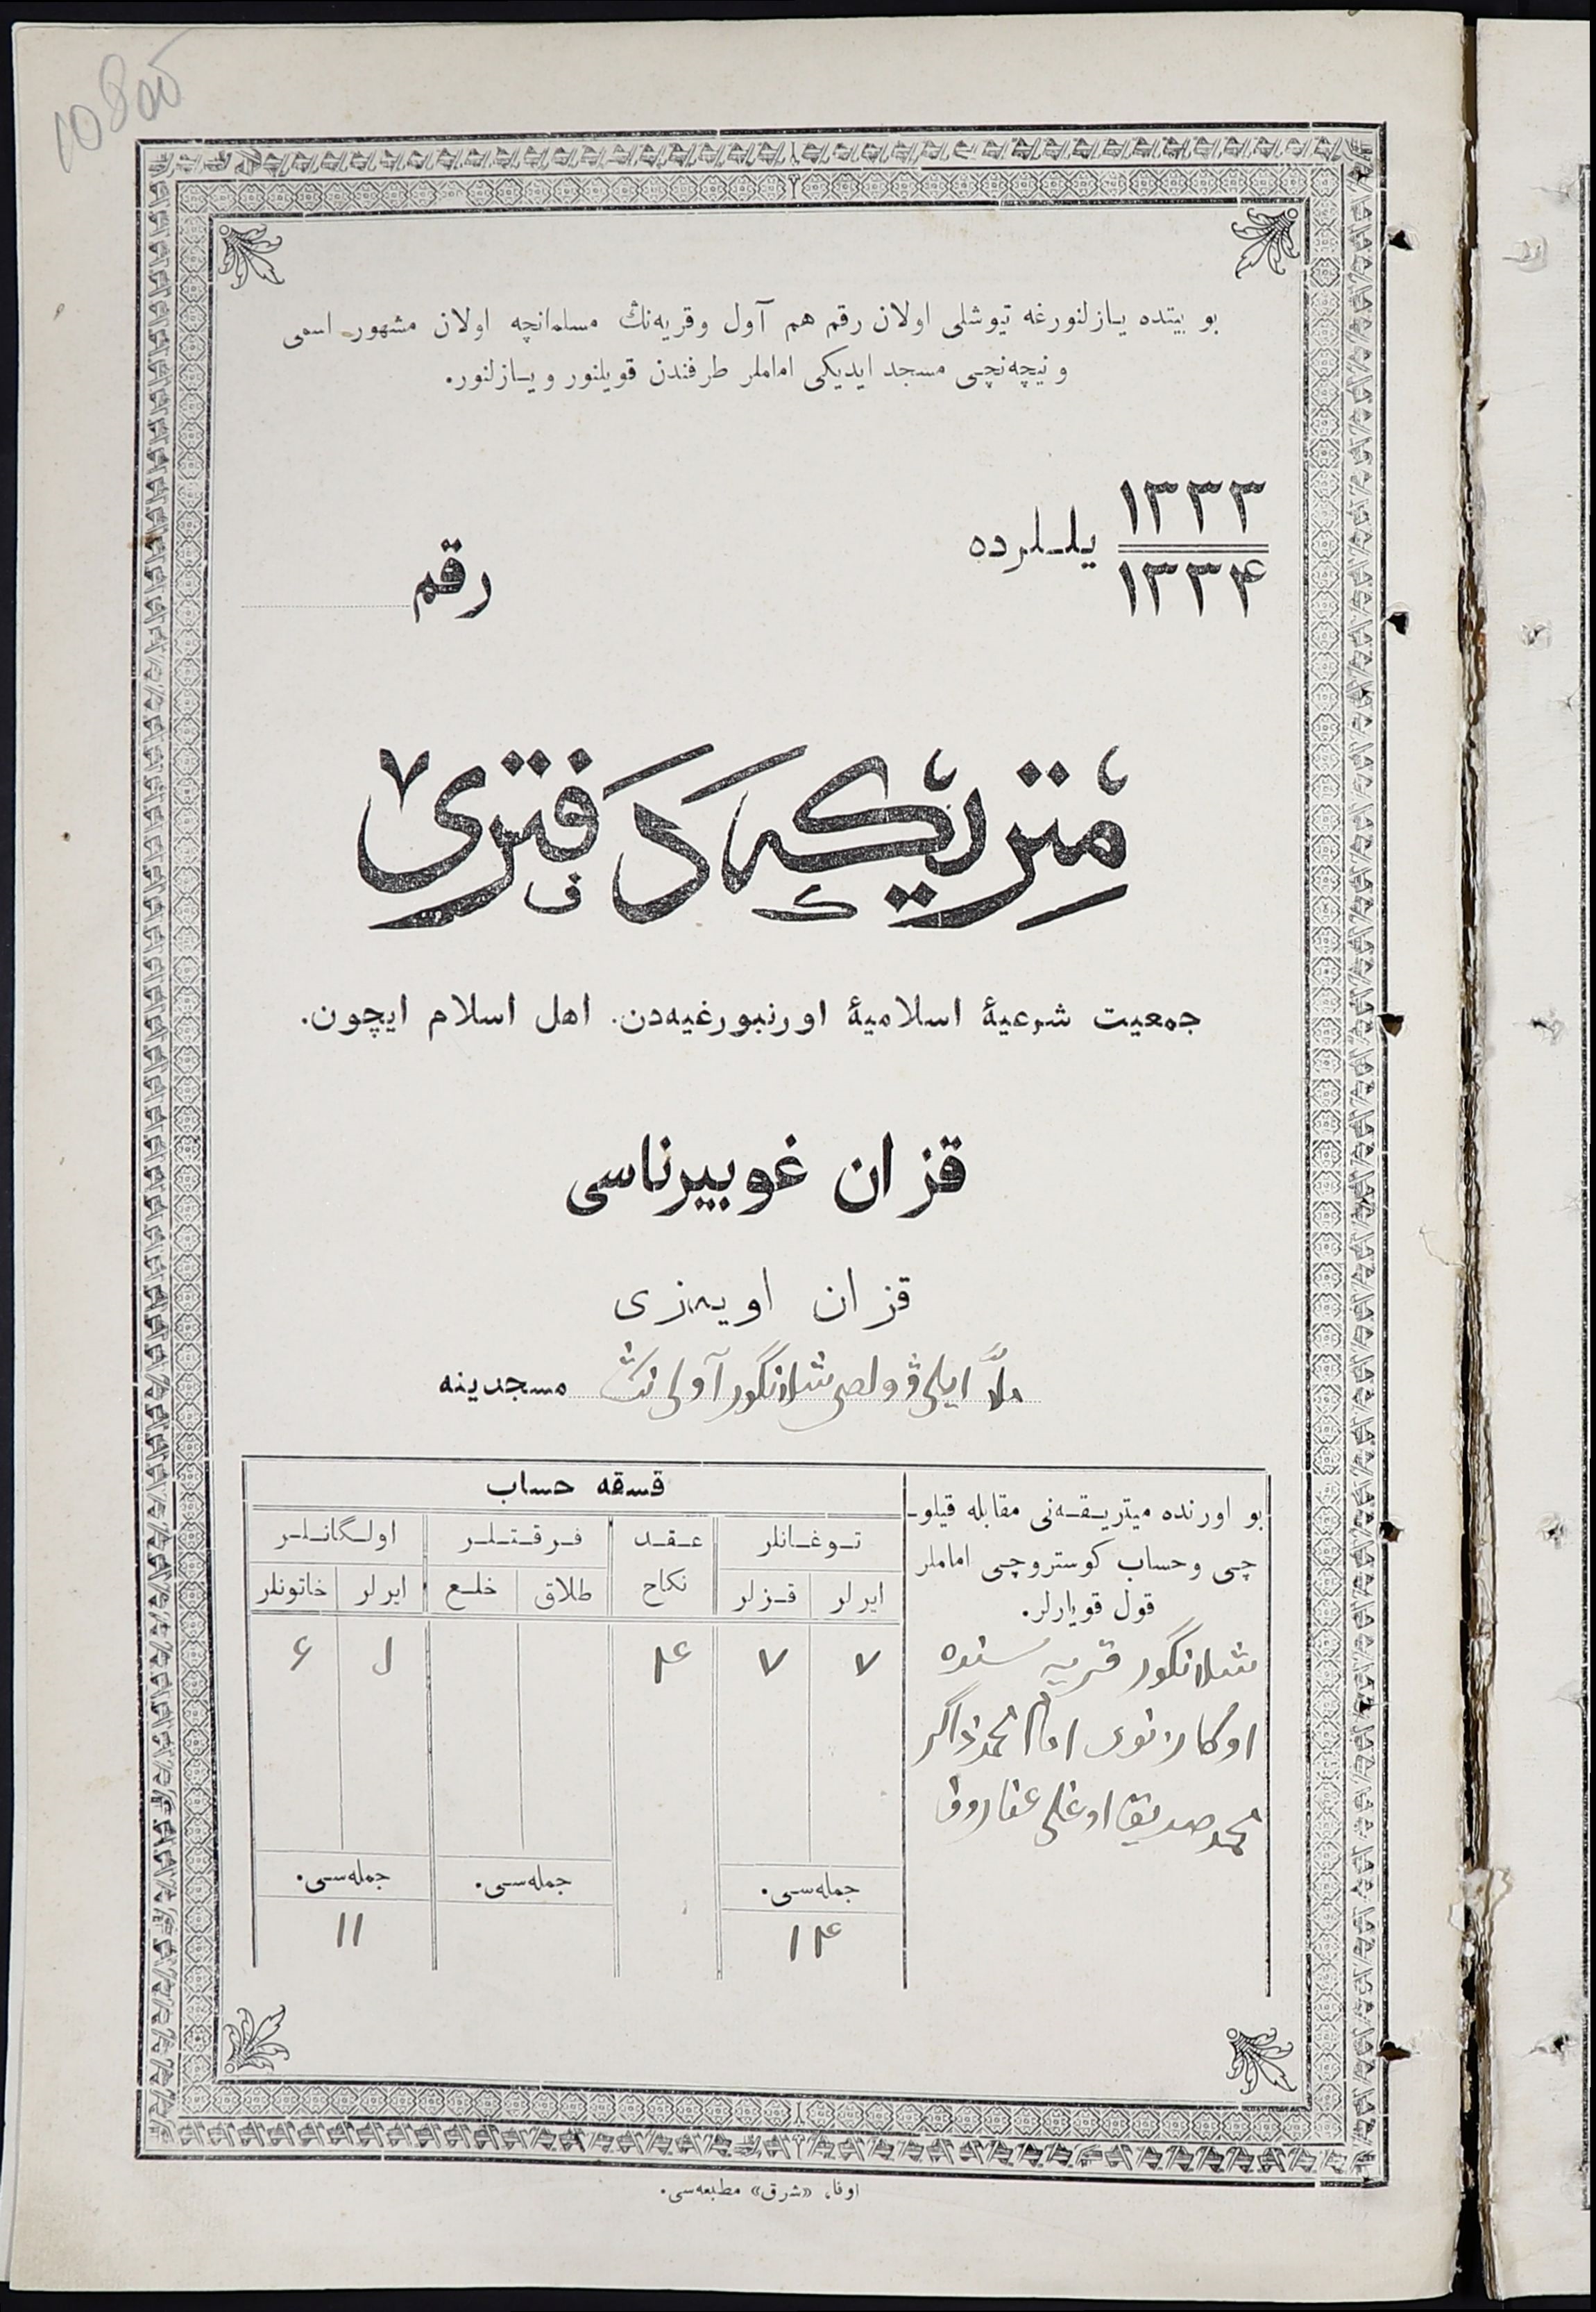 108об
بو بيتده يازلنورغه تيوشلى اولان رقم هم آول وقريه‌نڭ مسلمانچه اولان مشهور اسمى
ونيچه‌نچى مسجد ايديكى اماملر طرفندن قويلنور ويازلنور.
١٣٣٣
١٣٣۴
يللرده
رقم
مٔتريكه دفترى
جمعيت شرعيۀ اسلاميۀ اورنبورغيه‌دن. اهل اسلام ايچون.
قزان غوبيرناسى
قزان اويەزى
ملّا ايلى ۋولصى شلانگور آولى نڭ مسجدينه
بو اورنده ميتريقه‌نى مقابله قيلو-
چى وحساب كوستروچى اماملر
قول قويارلر.
شلانگور قريه سنده
اوكازنوى امام محمدذاكر
محمدصديق اوغلى غفاروف
قسقه حساب
توغانلر
عقد
نكاح
فرقتلر
اولگانلر
ايرلر
قزلر
طلاق
خلع
ايرلر
خاتونلر
٧
٧
۴
۶
جمله‌سى.
جمله‌سى.
جمله‌سى.
١۴
١١
اوفا، «شرق» مطبعه‌سى.